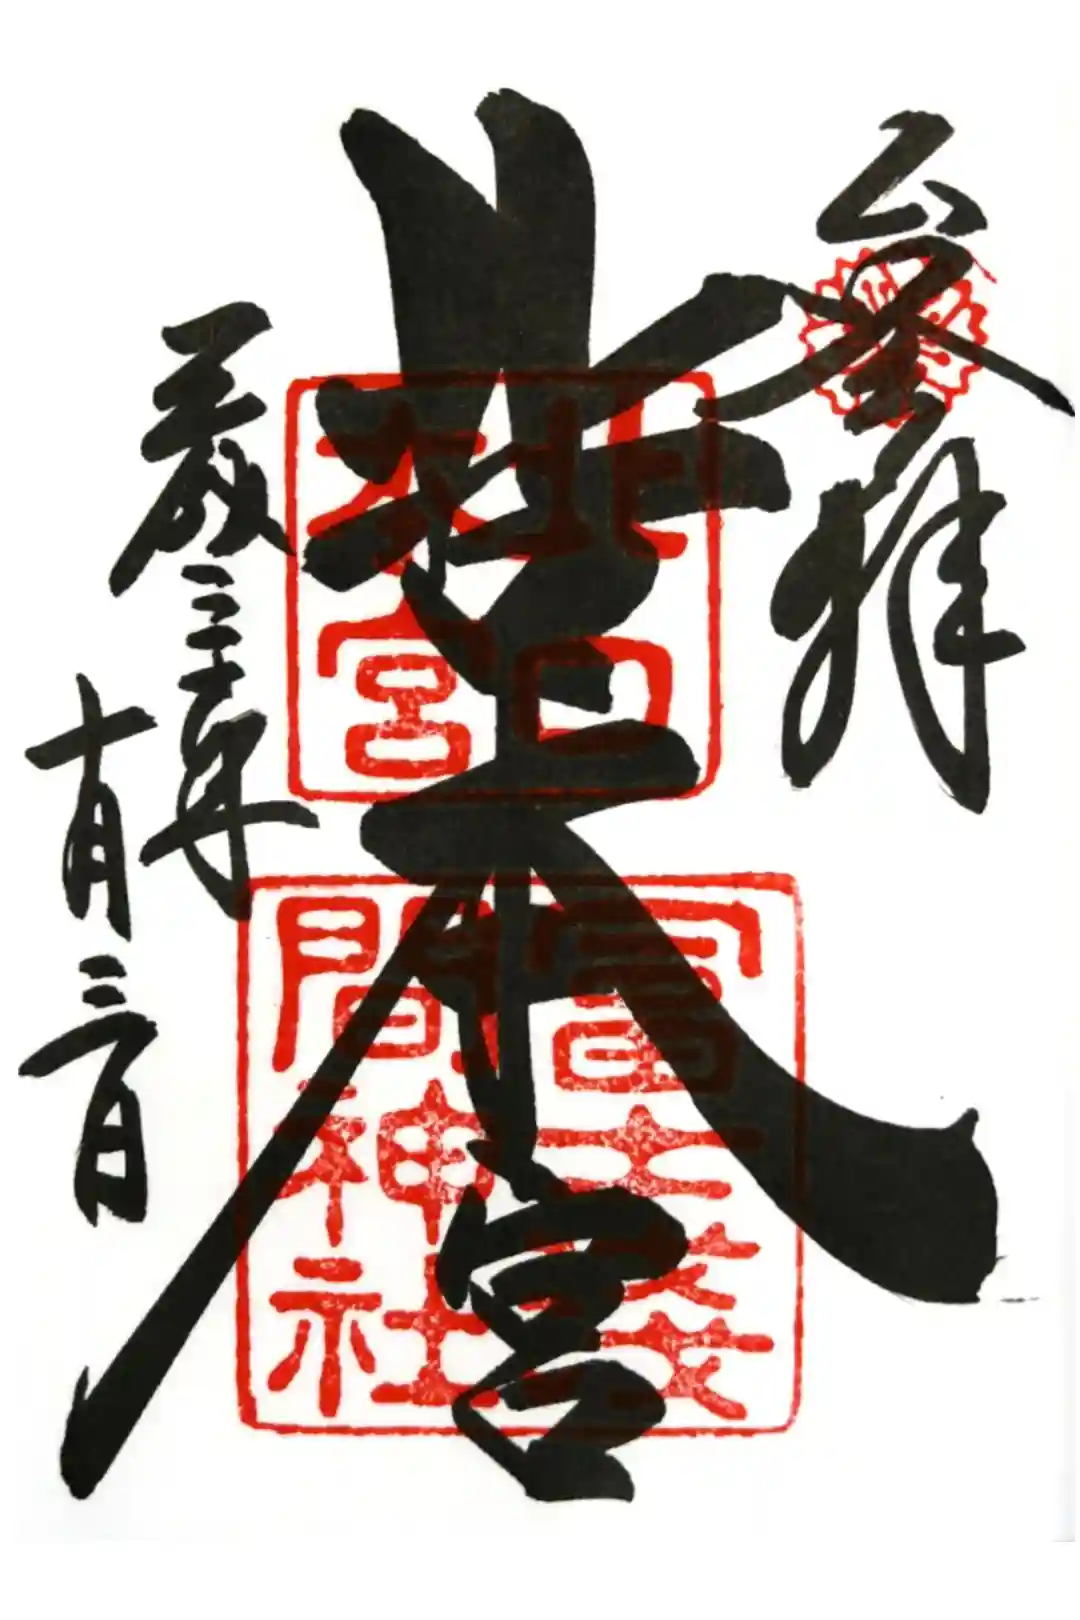 参拝
北口本宮
北口
本宮
冨士浅
間神社
平成三十年
十月三日